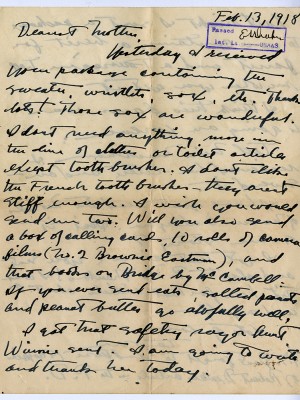 Feb. 13, 1918
Passed
Dearest Mother,
Yesterday I received
your package containing the
sweater, wristlets, sox, etc. Thanks
lots! Those sox are wonderful.
I dont need anything more in
the line of clothes or toilet articles
except tooth brushes. I dont like
the French tooth brushes - they aren't
stiff enough. I wish you would
send me two. Will you also send
a box of calling cards, 10 rolls of camera
films (No. 2 Brownie Eastman), and
that book on Bridge by Mc Campbell.
If you ever send eats, salted peanuts
and peanut butter go awfully well,
I got that safety razor Aunt
Winnie sent. I am going to write
and thank her today.